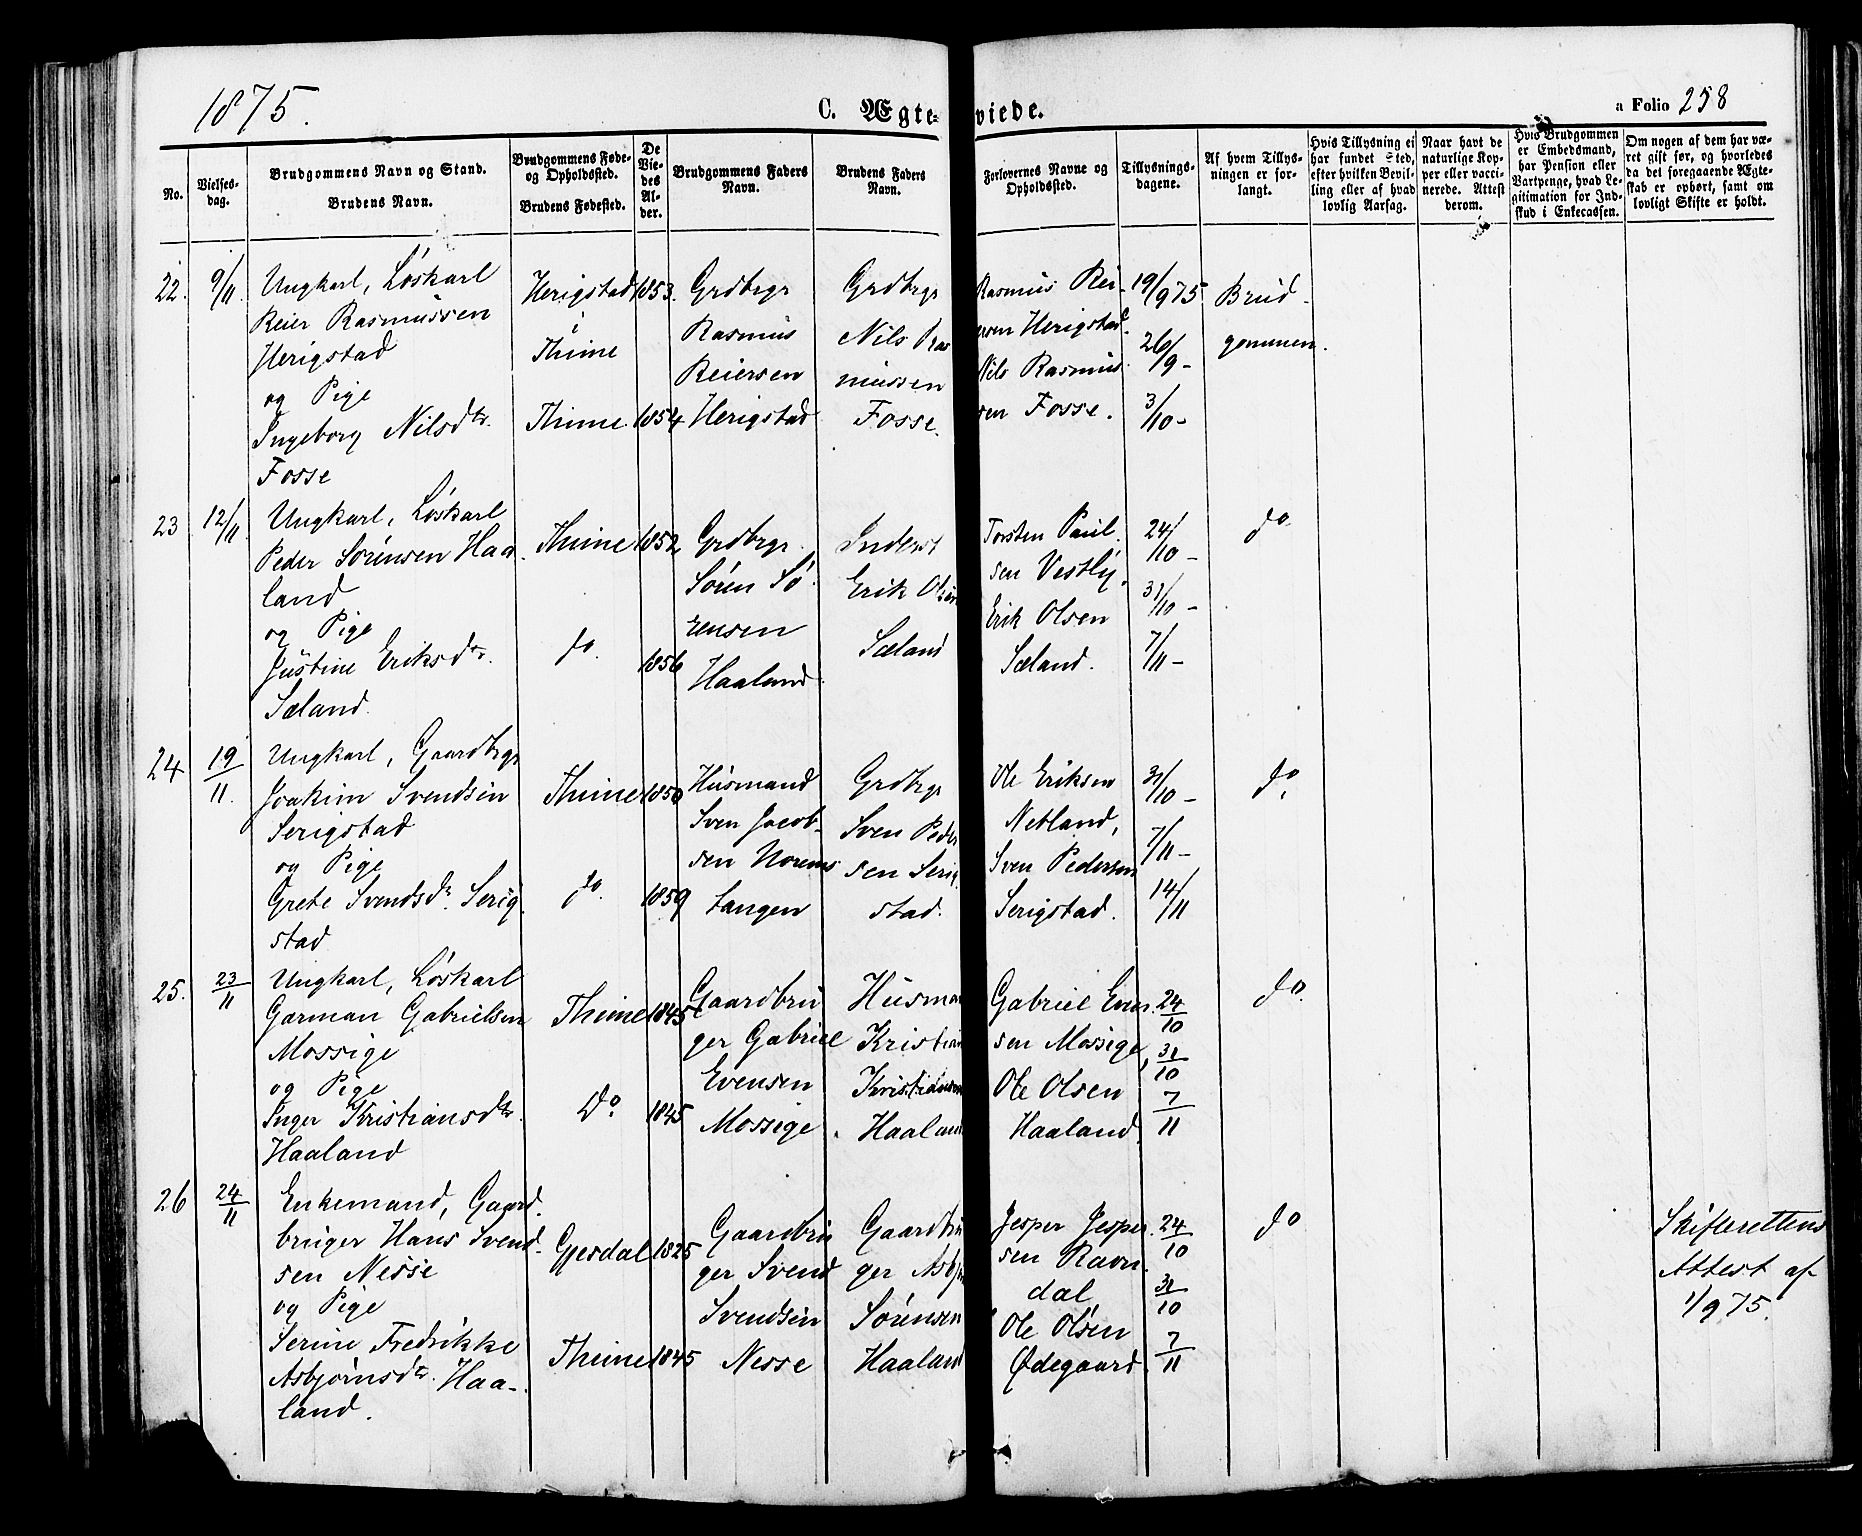 1875.
C. Ægte-
viede.
a Folio 258
No.
Vielses-
dag.
Brudgommens Navn og Stand.
Brudens Navn.
Brudgommens Føde-
og Opholdssted.
Brudens Fødested.
De
Vie-
des
Al-
der.
Brudgommens Faders
Navn.
Brudens Faders
Navn.
Forlovernes Navne og
Opholdssted.
Tillysnings-
dagene.
Af hvem Tillys-
ningen er for-
langt.
Hvis Tillysning ei
har fundet Sted,
efter hvilken Bevil-
ling eller af hvad
lovlig Aarsag.
Naar havt de
naturlige Kop-
per eller vacci-
nerede. Attest
derom.
Hvis Brudgommen
er Embedsmand,
har Pension eller
Vartpenge, hvad Le-
gitimation for Ind-
skud i Enkecassen.
Om nogen af dem har væ-
ret gift før, og hvorledes
da det foregaaende Ægte-
skab er ophørt, samt om
lovligt Skifte er holdt.
22.
9/11.
Ungkarl, Løskarl
Reier Rasmussen
Herigstad
og Pige
Ingeborg Nilsdtr.
Fosse
Herigstad
i
Thime
Thime.
1853.
1854
Grdbrgr
Rasmus
Reiersen
Herigstad
Grdbrgr
Nils Ras
mussen
Fosse.
Rasmus Rei-
ersen Herigstad.
Nils Rasmus.
sen Fosse.
19/9 75
26/9 -
3/10 -
Brud-
gommen.
23
12/11
Ungkarl, Løskarl
Peder Sørensen Haa.
land
og Pige
Justine Eriksdtr.
Sæland.
Thime
do.
1852
1856
Grdbrgr.
Søren Sø.
rensen
Haaland.
Inderst
Erik Olsen
Sæland
Torsten Paul.
sen Vestly.
Erik Olsen
Sæland.
24/10 -
31/10 -
7/11 -
do.
24
19/11.
Ungkarl, Gaardbrgr
Joakim Svendsen
Serigstad
og Pige
Grete Svendsdr. Serig.
stad
Thime
do.
1850
1859
Husmand
Sven Jacob-
sen Norems
tangen
Grdbrgr
Sven Peder
sen Serig.
stad.
Ole Eriksen
Netland,
Sven Pedersen
Serigstad.
31/10 -
7/11 -
14/11
do.
25.
23/11
Ungkarl, Løskarl
Garman Gabrielsen
Mossige
og Pige
Inger Kristiansdtr.
Haaland
Thime
Do.
1845
1845
Gaardbru
ger Gabriel
Evensen
Mossige
Husman
Kristian
Kristiansen
Haaland
Gabriel Even.
sen Mossige,
Ole Olsen
Haaland.
24/10
31/10
7/11
do.
26
24/11
Enkemand, Gaard.
bruger Hans Svend.
sen Nesse
og Pige
Serine Fredrikke
Asbjørnsdtr. Haa-
land.
Gjesdal
Thime
1825
1845
Gaardbru
ger Svend
Svendsen
Nesse
Gaardbru
ger Asbjør
Sørensen
Haaland
Jesper Jesper.
sen Ravn.
dal
Ole Olsen
Ødegaard
24/10
31/10
7/11
do
Skifterettens
Attest af
1/9 75.